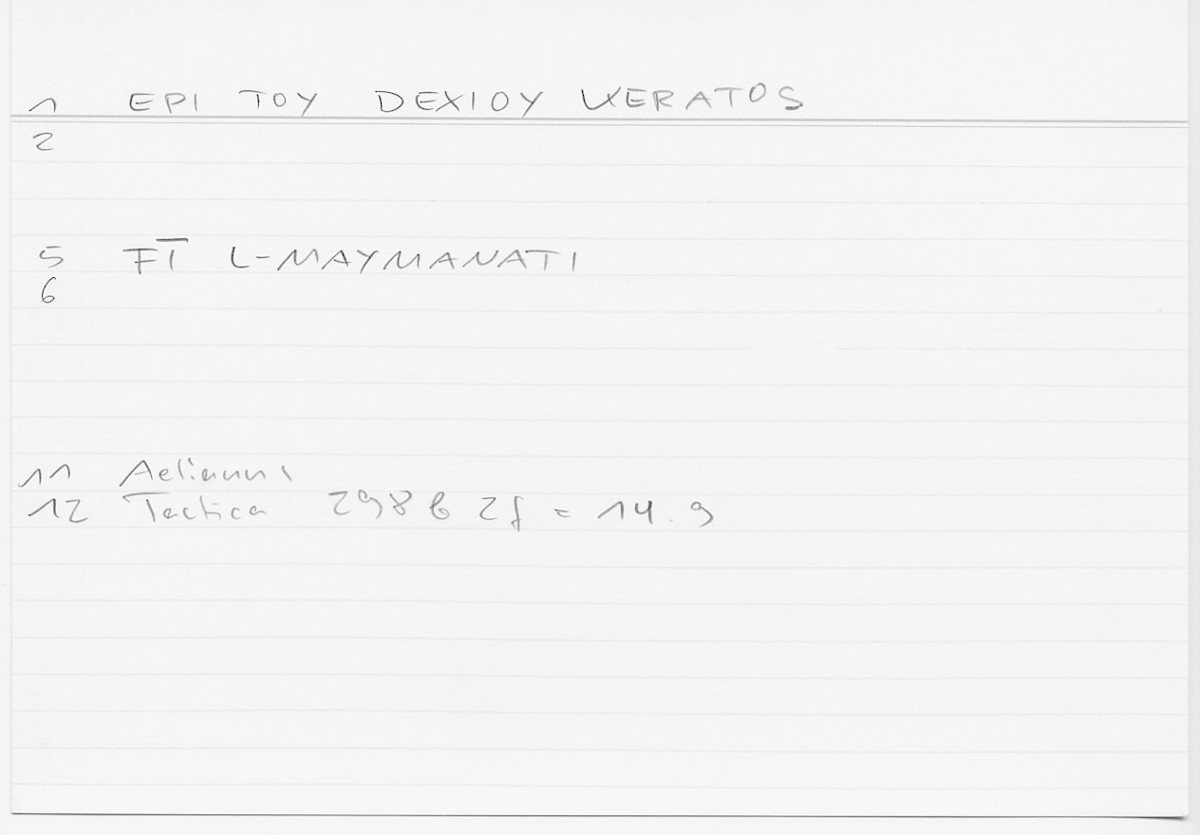 1 EPI TOY DEXIOY KERATOS
2
5 FĪ L-MAYMANATI
6
11 Aelianus
12 Tactica 298 b 2f = 14.9